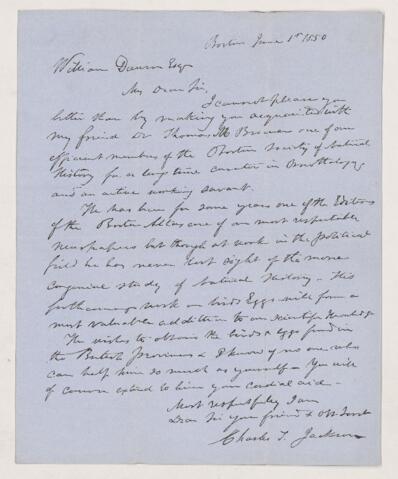 Boston June 1st 1850
William Dawson Esq
My Dear Sir,
I cannot please you
better than by making you acquainted with
my friend Dr Thomas M Brewer one of our
efficient members of the Boston Society of Natural
History for a long time curator in Ornithology,
and an active working savant.
He has been for some years one of the Editors
of the Boston Atlas one of our most respectable
Newspapers but though at work in the political
field he has never lost sight of the more
congenial study of Natural History - His
forthcoming work on birds Eggs will form a
most valuable addition to our scientific knowledge
He wishes to obtain the birds & eggs found in
the British Provinces & I know of no one who
can help him so much as yourself - You will
of course extend to him your cordial aid -
Most respectfully I am
Dear Sir your friend & obt Servt
Charles T. Jackson